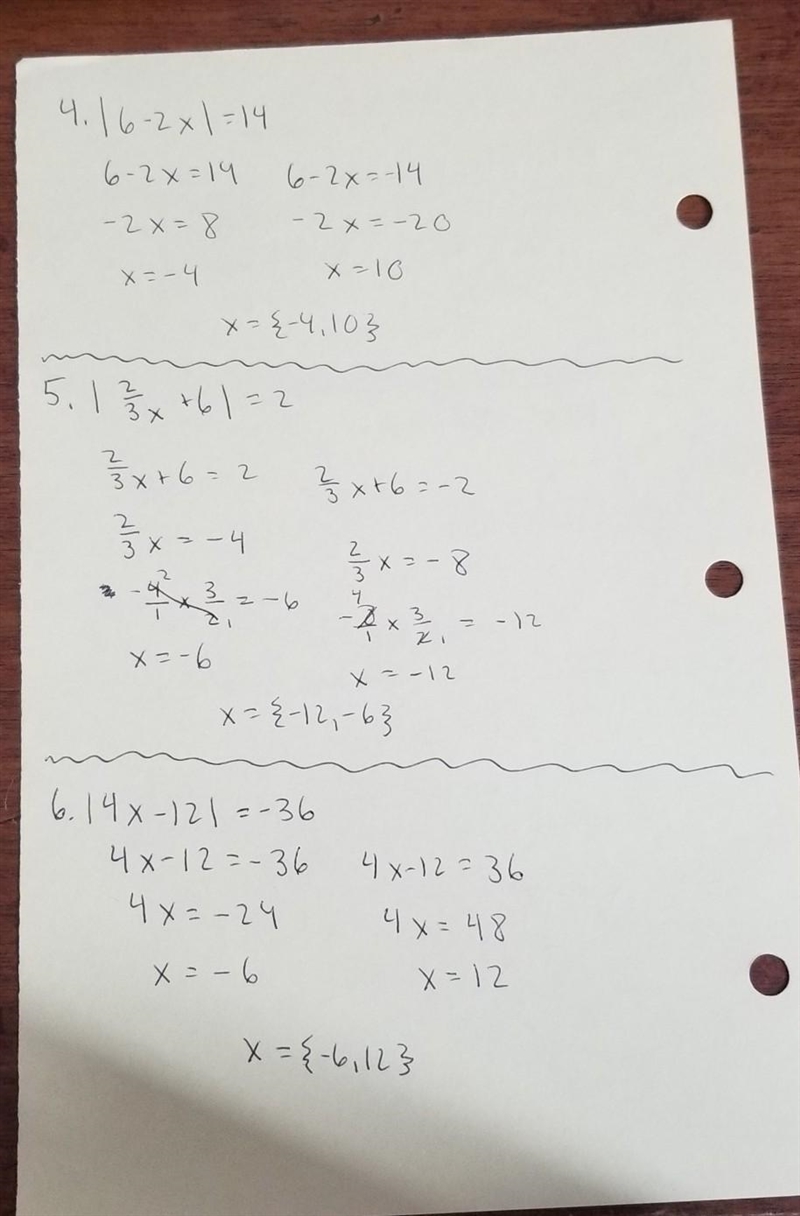 4. |6-2x| =14
6-2x=14 6-2x=-14
-2x=8 -2x=-20
x=-4 x=10
x={-4,10}
5. |2/3x +6| = 2
2/3x+6 = 2 2/3x+6 = -2
2/3x = -4 2/3x = -8
-4/1 2 x 3/2 1 = -6 4 -8/1 x 3/2 1 = -12
x=-6 x = -12
x={-12,-6}
6. |4x-12| =-36
4x-12=-36 4x-12=36
4x=-24 4x=48
x=-6 x=12
x={-6,12}